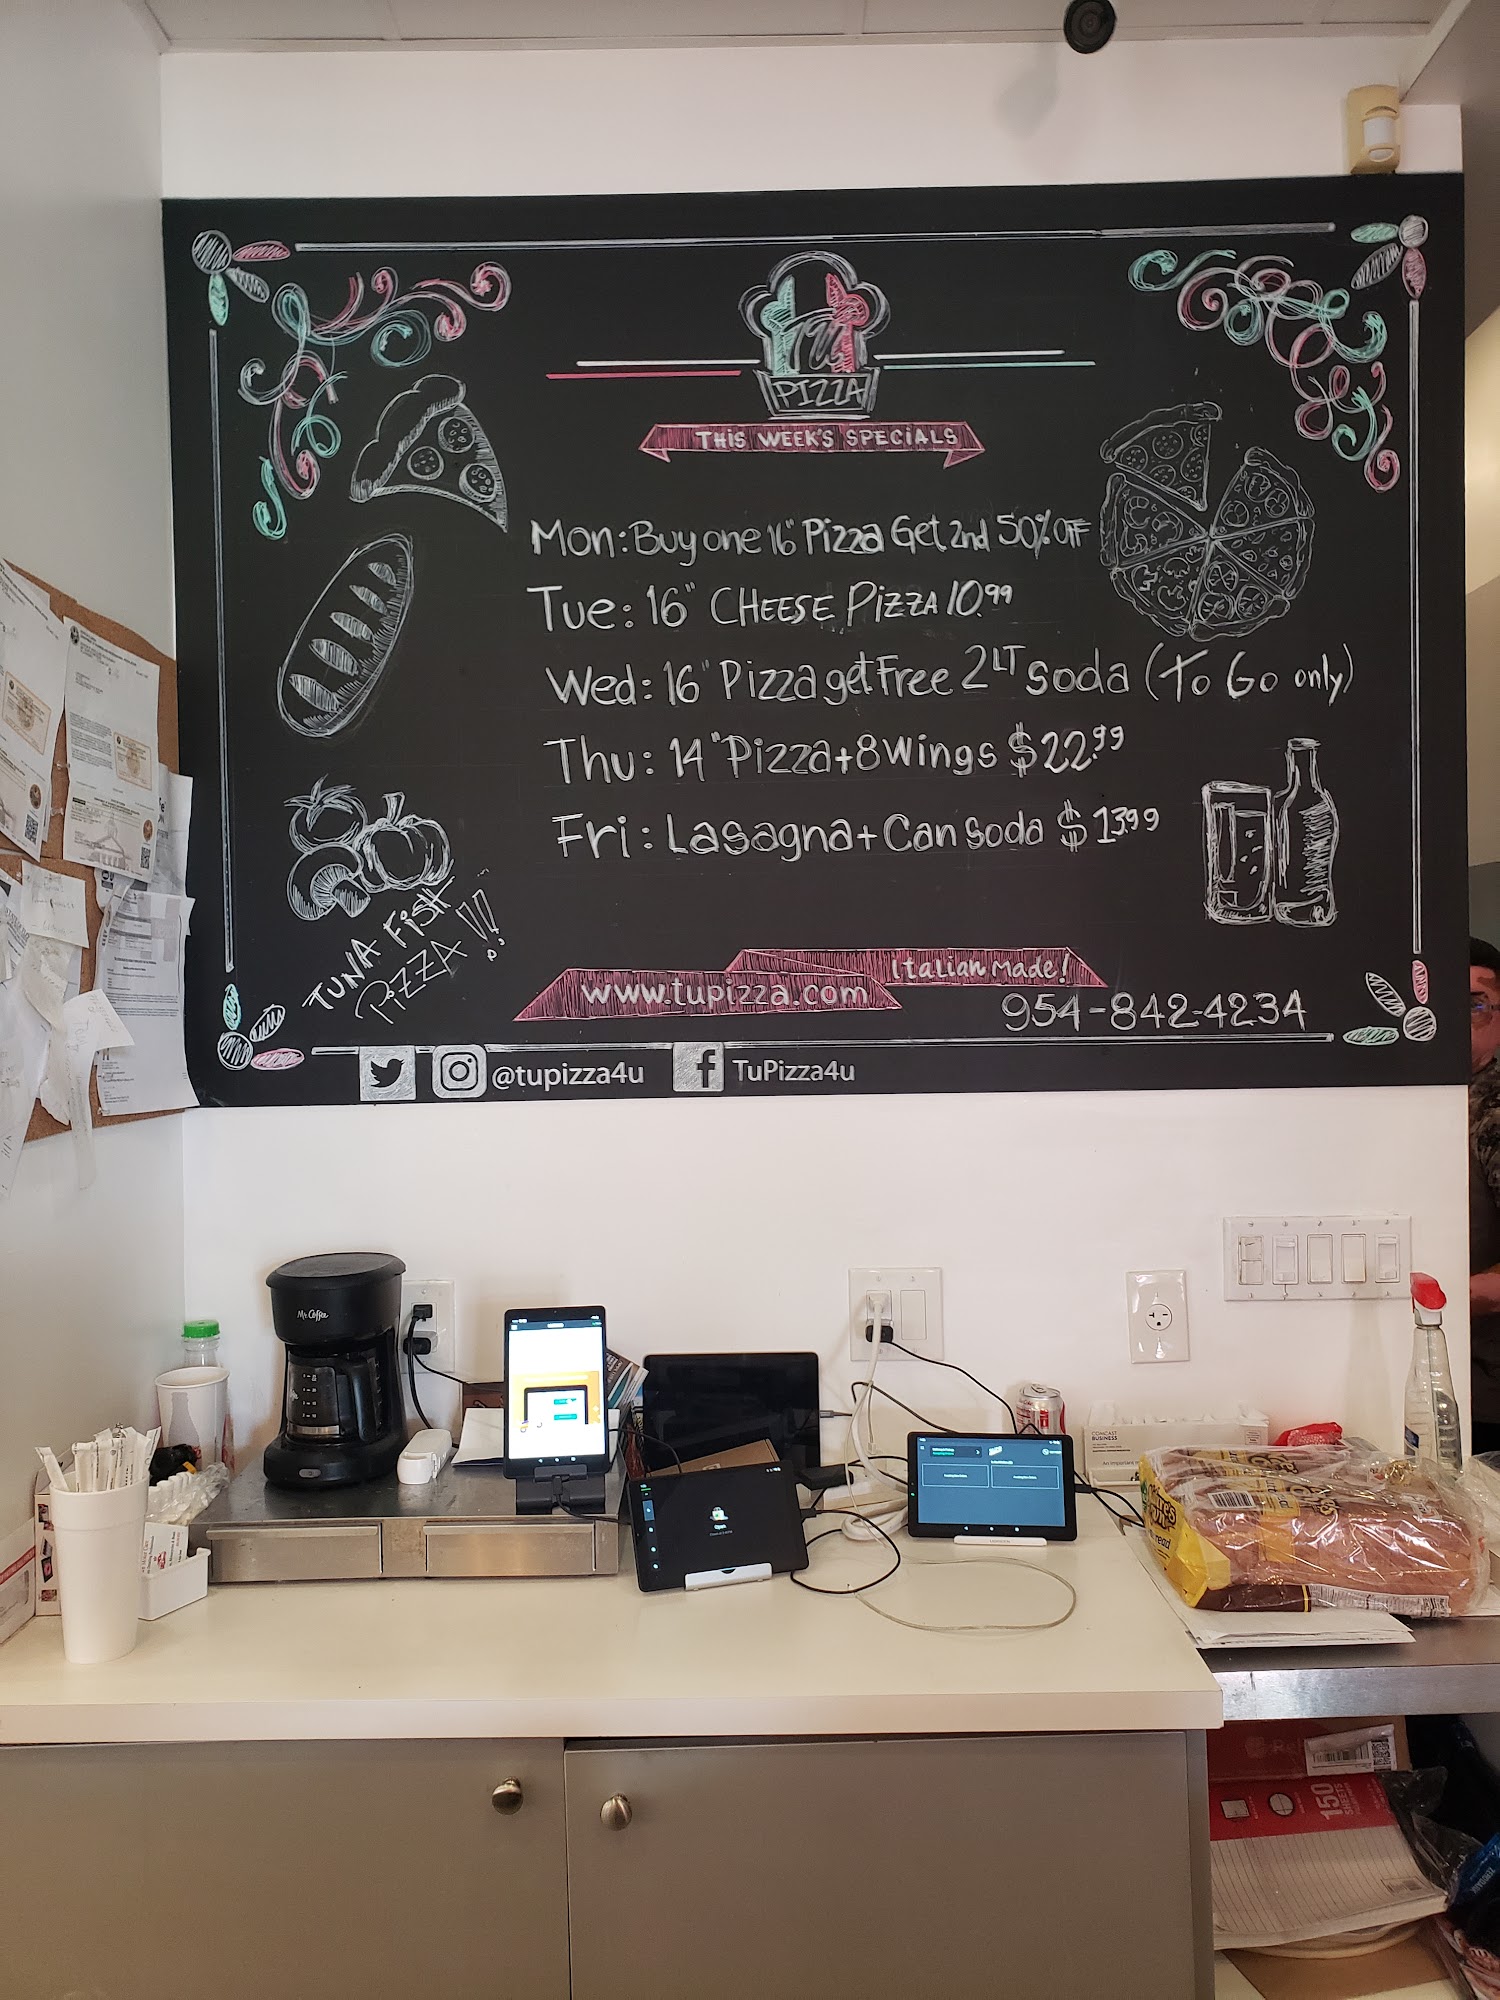 Tu
PIZZA
THIS WEEK'S SPECIALS
Mon: Buy one 16" Pizza Get 2nd 50% OFF
Tue: 16" CHEESE PIZZA 10.99
Wed: 16" Pizza get Free 2LT Soda (To Go only)
Thu: 14" Pizza + 8 Wings $22.99
Fri: Lasagna + Can Soda $13.99
TUNA FISH
PIZZA!!!
Italian Made!
www.tupizza.com
954-842-4234
@tupizza4u
TuPizza4u
Mr. Coffee
Open
COMCAST
BUSINESS
150
SHEETS